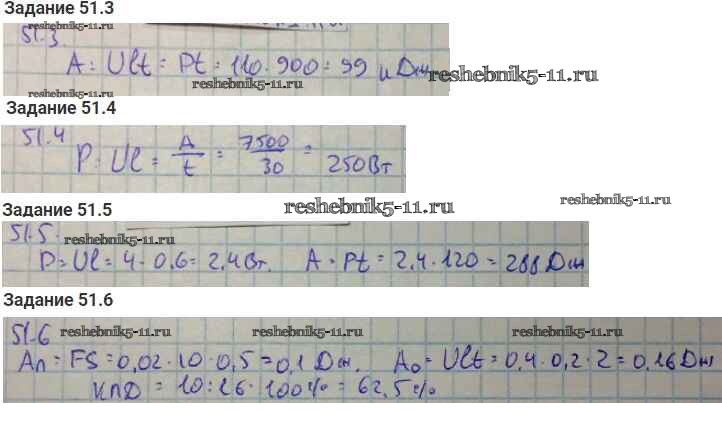 Задание 51.3
51.3.
A = UIt = Pt = 110 · 900 = 99 кДж
reshebnik5-11.ru
reshebnik5-11.ru
reshebnik5-11.ru
Задание 51.4
51.4
P = UI = A/t = 7500/30 = 250Вт
reshebnik5-11.ru
Задание 51.5
reshebnik5-11.ru
51.5. reshebnik5-11.ru
P = UI = 4 · 0.6 = 2.4Вт. A = Pt = 2,4 · 120 = 288Дж
Задание 51.6
51.6 reshebnik5-11.ru reshebnik5-11.ru reshebnik5-11.ru
Aп = FS = 0,02 · 10 · 0,5 = 0,1 Дж. A₀ = UIt = 0,4 · 0,2 · 2 = 0,16Дж
КПД = 10:16 · 100% = 62,5%